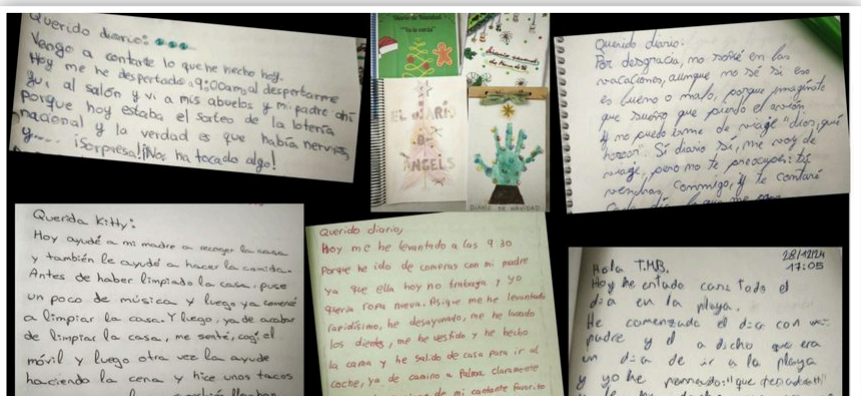 Querido diario:
Vengo a contarte lo que he hecho hoy.
Hoy me he despertado a 9:00am, al despertarme
fui al salón y vi a mis abuelos y mi padre ahí
porque hoy estaba el sorteo de la lotería
nacional y la verdad es que había nervios
y.... ¡Sorpresa! ¡Nos ha tocado algo!
Diario de Navidad
EL DIARI
DE
ÀNGELS
DIARIO DE NAVIDAD
Querido diario:
Por desgracia, no soñé en las
vacaciones, aunque no sé si eso
es bueno o malo, porque imagínate
que sueño que pierdo el avión
y no puedo irme de viage "dios, qué
horror". Sí diario sí, me voy de
viage, pero no te preocupes: tú
vendras conmigo, y te contaré
Querida Kitty:
Hoy ayudé a mi madre a recoger la casa
y también le ayudé a hacer la comida.
Antes de haber limpiado la casa, puse
un poco de música y luego ya comencé
a limpiar la casa. Y luego, ya de acabar
de limpiar la casa, me senté, cogí el
móvil y luego otra vez la ayude
haciendo la cena y hice unos tacos
Querido diario,
Hoy me he levantado a las 9:30
Porque he ido de compras con mi madre
ya que ella hoy no trabaja y yo
quería ropa nueva. Asique me he levantado
rapidísimo, he desayunado, me he lavado
los dientes, me he vestido y he hecho
la cama y he salido de casa para ir al
coche, ya de camino a Palma claramente
de mi cantante favorito
28/12/24
17:05
Hola T.M.B.
Hoy he estado casi todo el
día en la playa.
He comenzado el día con mi
padre y él a dicho que era
un día de ir a la playa
y yo he pensado: "que